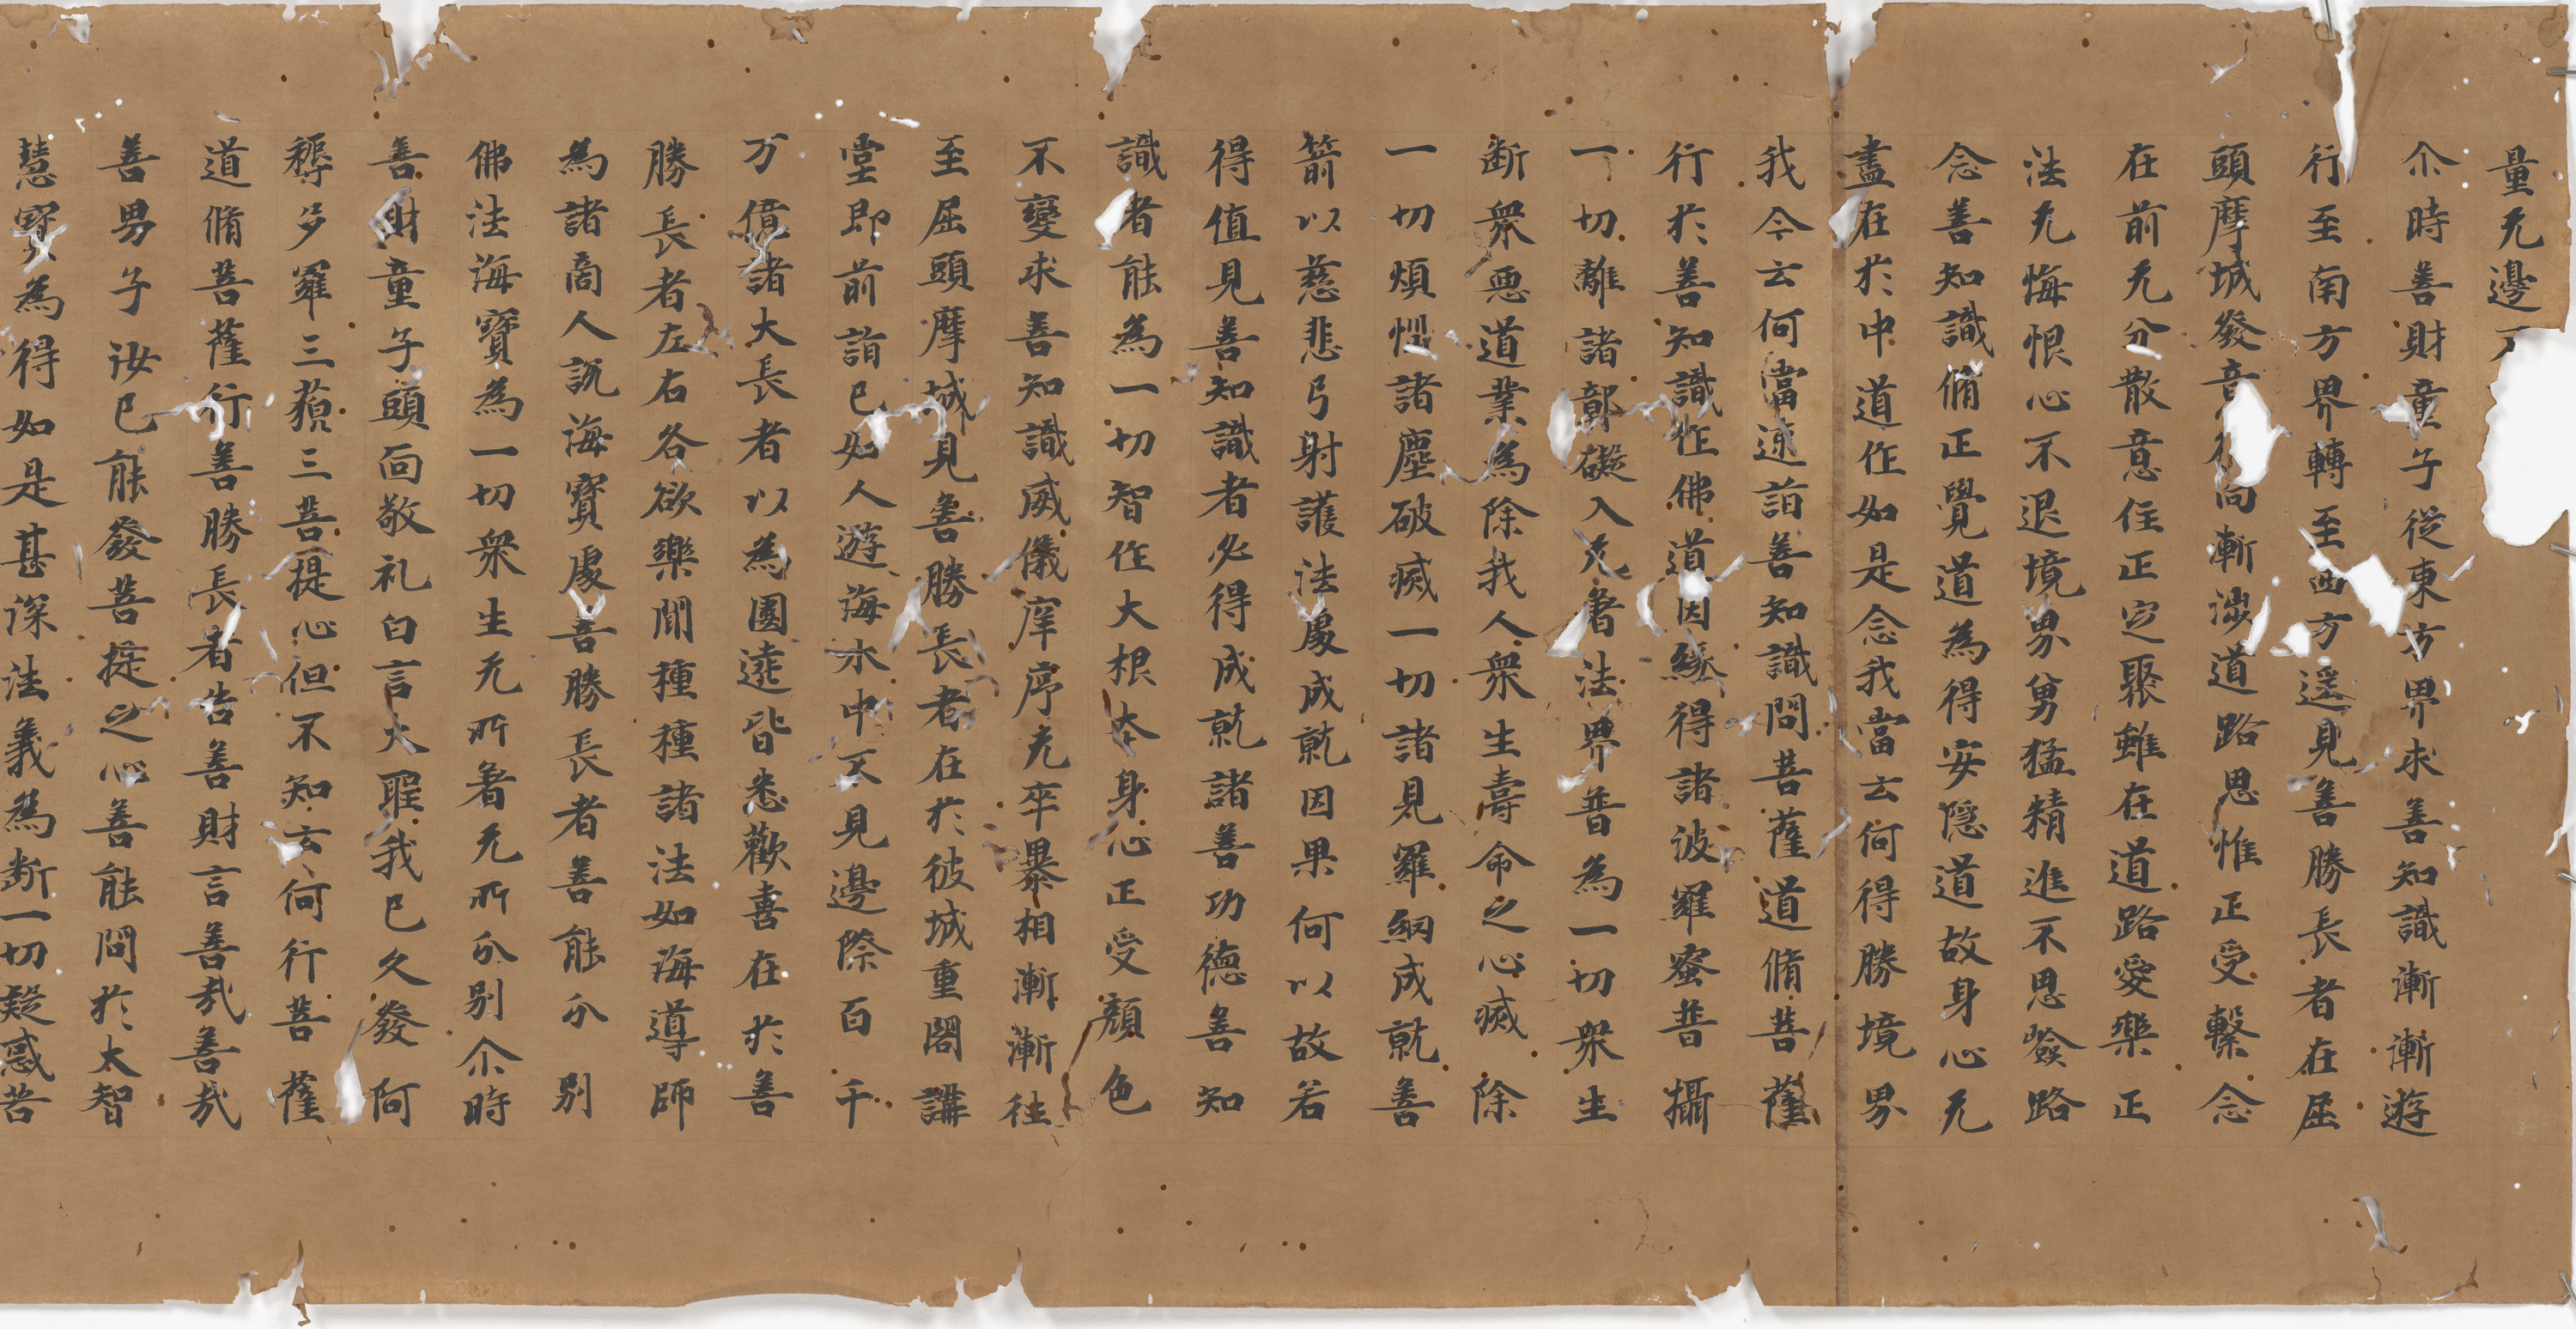 量无邊
尒時善財童子從東方界求善知識漸漸遊
行至南方界轉至西方遥見善勝長者在屈
頭摩城發意徃向漸涉道路思惟正受繫念
在前无分散意住正定聚雖在道路愛樂正
法无悔恨心不退境界勇猛精進不思嶮路
念善知識脩正覺道為得安隱道故身心无
盡在於中道作如是念我當云何得勝境界
我今云何當速詣善知識問菩薩道脩菩薩
行於善知識作佛道因緣得諸波羅蜜普攝
一切離諸鄣礙入无著法界普為一切衆生
断衆惡道業為除我人衆生壽命之心滅除
一切煩惱諸塵破滅一切諸見羅網成就善
箭以慈悲弓射護法處成就因果何以故若
得值見善知識者必得成就諸善功德善知
識者能為一切智作大根本身心正受顏色
不變求善知識威儀庠序无卒暴相漸漸往
至屈頭摩城見善勝長者在於彼城重閣講
堂即前詣已如人遊海水中不見邊際百千
万億諸大長者以為圍遶皆悉歡喜在於善
勝長者左右各欲樂聞種種諸法如海導師
為諸商人說海寶處善勝長者善能分別
佛法海寶為一切衆生无所著无所分別尒時
善財童子頭面敬礼白言大聖我已久發阿
耨多羅三藐三菩提心但不知云何行菩薩
道脩菩薩行善勝長者告善財言善哉善哉
善男子汝已能發菩提之心善能問於太智
慧寶為得如是甚深法義為断一切疑惑苦